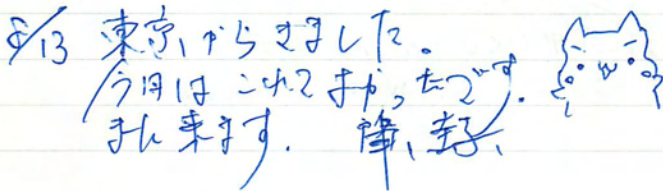 8/13 東京から来ました。
今日はこれてよかったです。
また来ます。